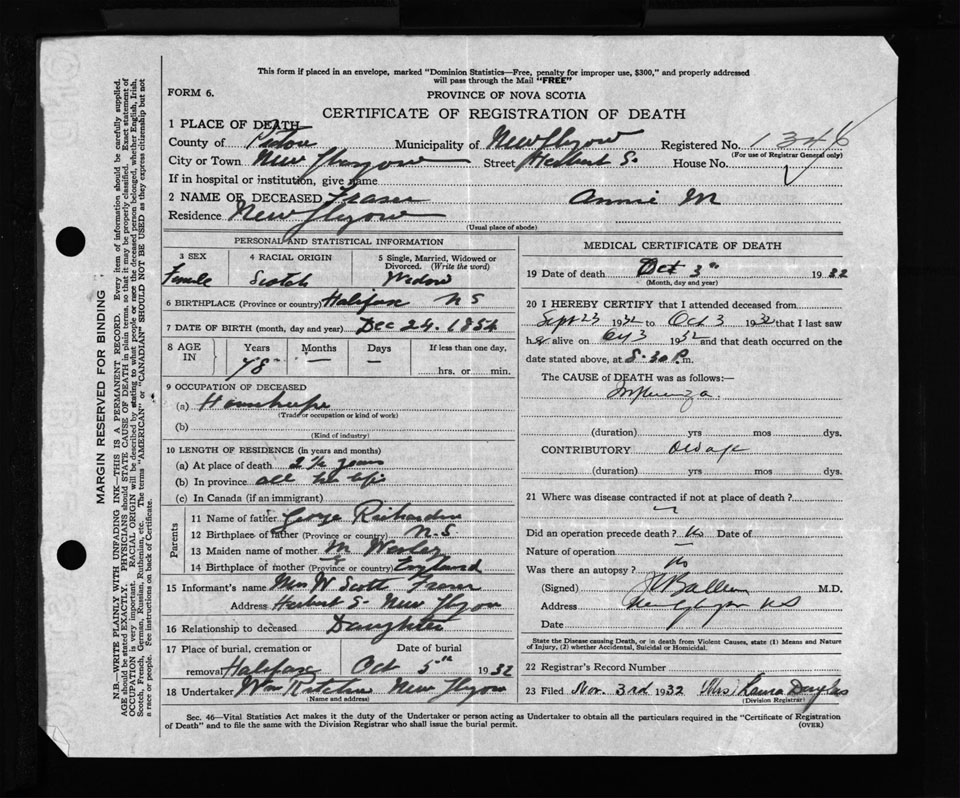 This form if placed in an envelope, marked "Dominion Statistics—Free, penalty for improper use, $300," and properly addressed
will pass through the Mail "FREE"
FORM 6.
PROVINCE OF NOVA SCOTIA
CERTIFICATE OF REGISTRATION OF DEATH
1 PLACE OF DEATH
County of Pictou Municipality of New Glasgow Registered No.
(For use of Registrar General only)
City or Town New Glasgow Street Herbert S. House No.
If in hospital or institution, give name
2 NAME OF DECEASED Fraser Annie M
Residence New Glasgow
(Usual place of abode)
PERSONAL AND STATISTICAL INFORMATION
3 SEX 4 RACIAL ORIGIN 5 Single, Married, Widowed or Divorced. (Write the word)
Female Scotch Widow
6 BIRTHPLACE (Province or country) Halifax N S
7 DATE OF BIRTH (month, day and year) Dec 24. 1854
8 AGE IN Years Months Days If less than one day,
78 — — hrs. or min.
9 OCCUPATION OF DECEASED
(a)
(Trade or occupation or kind of work)
(b)
(Kind of industry)
10 LENGTH OF RESIDENCE (in years and months)
(a) At place of death 2 ½ years
(b) In province all her life
(c) In Canada (if an immigrant)
Parents
11 Name of father George Richardson
12 Birthplace of father (Province or country) N.S
13 Maiden name of mother M
14 Birthplace of mother (Province or country) England
15 Informant's name Mrs W Scott Fraser
Address Herbert S. New Glasgow
16 Relationship to deceased Daughter
17 Place of burial, cremation or removal Date of burial
Halifax Oct 5th 1932
18 Undertaker Wm Ritchie New Glasgow
(Name and address)
MEDICAL CERTIFICATE OF DEATH
19 Date of death Oct 3rd 1932
(Month, day and year)
20 I HEREBY CERTIFY that I attended deceased from
Sept 23 1932 to Oct 3 1932 that I last saw
her alive on Oct 3 1932 and that death occurred on the
date stated above, at 8.30 P.m.
The CAUSE of DEATH was as follows:—
Influenza.
(duration) yrs mos dys.
CONTRIBUTORY Old age
(duration) yrs mos dys.
21 Where was disease contracted if not at place of death?
Did an operation precede death? No Date of
Nature of operation —
Was there an autopsy? No
(Signed) M.D.
Address New Glasgow N S
Date
State the Disease causing Death, or in death from Violent Causes, state (1) Means and Nature
of Injury, (2) whether Accidental, Suicidal or Homicidal.
22 Registrar's Record Number
23 Filed Nov. 3rd 1932 Mrs Laura Douglas
(Division Registrar)
Sec. 46—Vital Statistics Act makes it the duty of the Undertaker or person acting as Undertaker to obtain all the particulars required in the "Certificate of Registration
of Death" and to file the same with the Division Registrar who shall issue the burial permit.
(OVER)
MARGIN RESERVED FOR BINDING
N.B.—WRITE PLAINLY WITH UNFADING INK—THIS IS A PERMANENT RECORD. Every item of information should be carefully supplied.
AGE should be stated EXACTLY. PHYSICIANS should STATE CAUSE OF DEATH in plain terms, so that it may be properly classified. Exact statement of
OCCUPATION is very important. RACIAL ORIGIN will be described by stating to what people or race the deceased person belonged, whether English, Irish,
Scotch, French, German, Russian, Ruthenian, etc. The terms "AMERICAN" or "CANADIAN" SHOULD NOT BE USED as they express citizenship but not
a race or people. See instructions on back of Certificate.